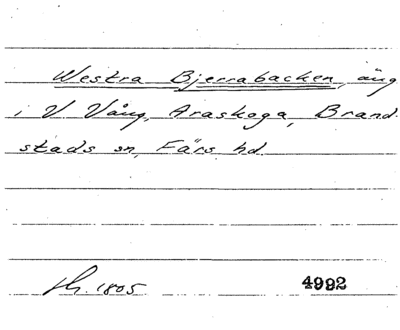 Westra Bjerrabacken, äng
i V Vång, Araskoga, Brand-
stads sn, Färs hd.
1805. 4992